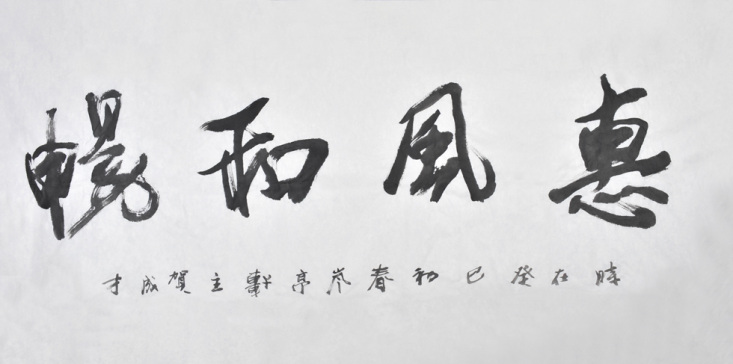 惠風和暢
時在癸巳初春岑亭軒主賀成才